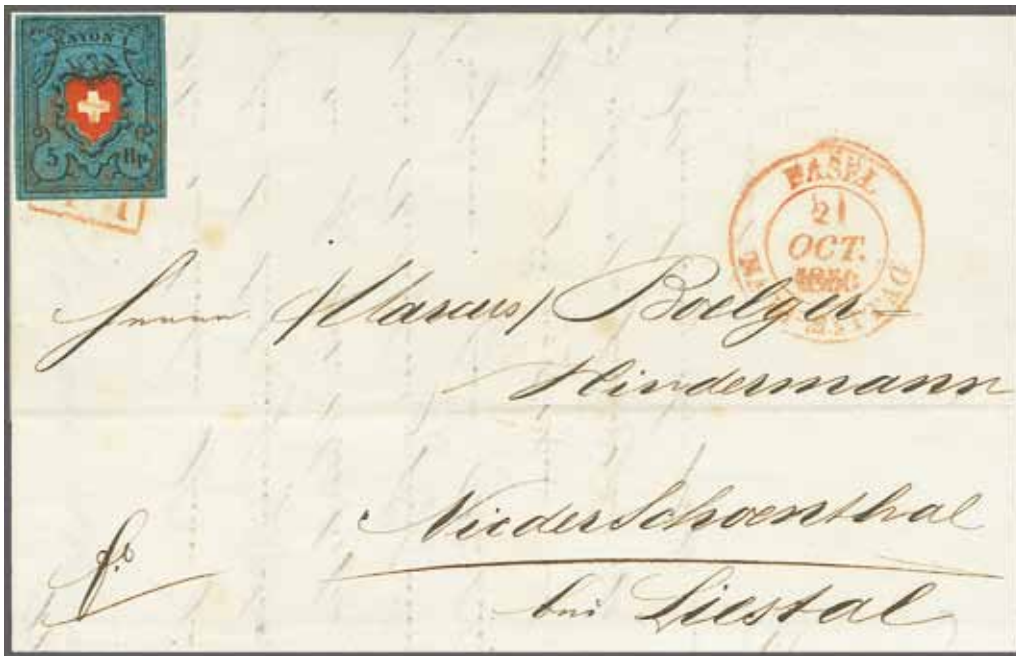 RAYON I
5 Rp.
BASEL
21
OCT.
1850
Herrn Marcus Boelger=
Hindermann
Niederschoenthal
fo
bei Liestal